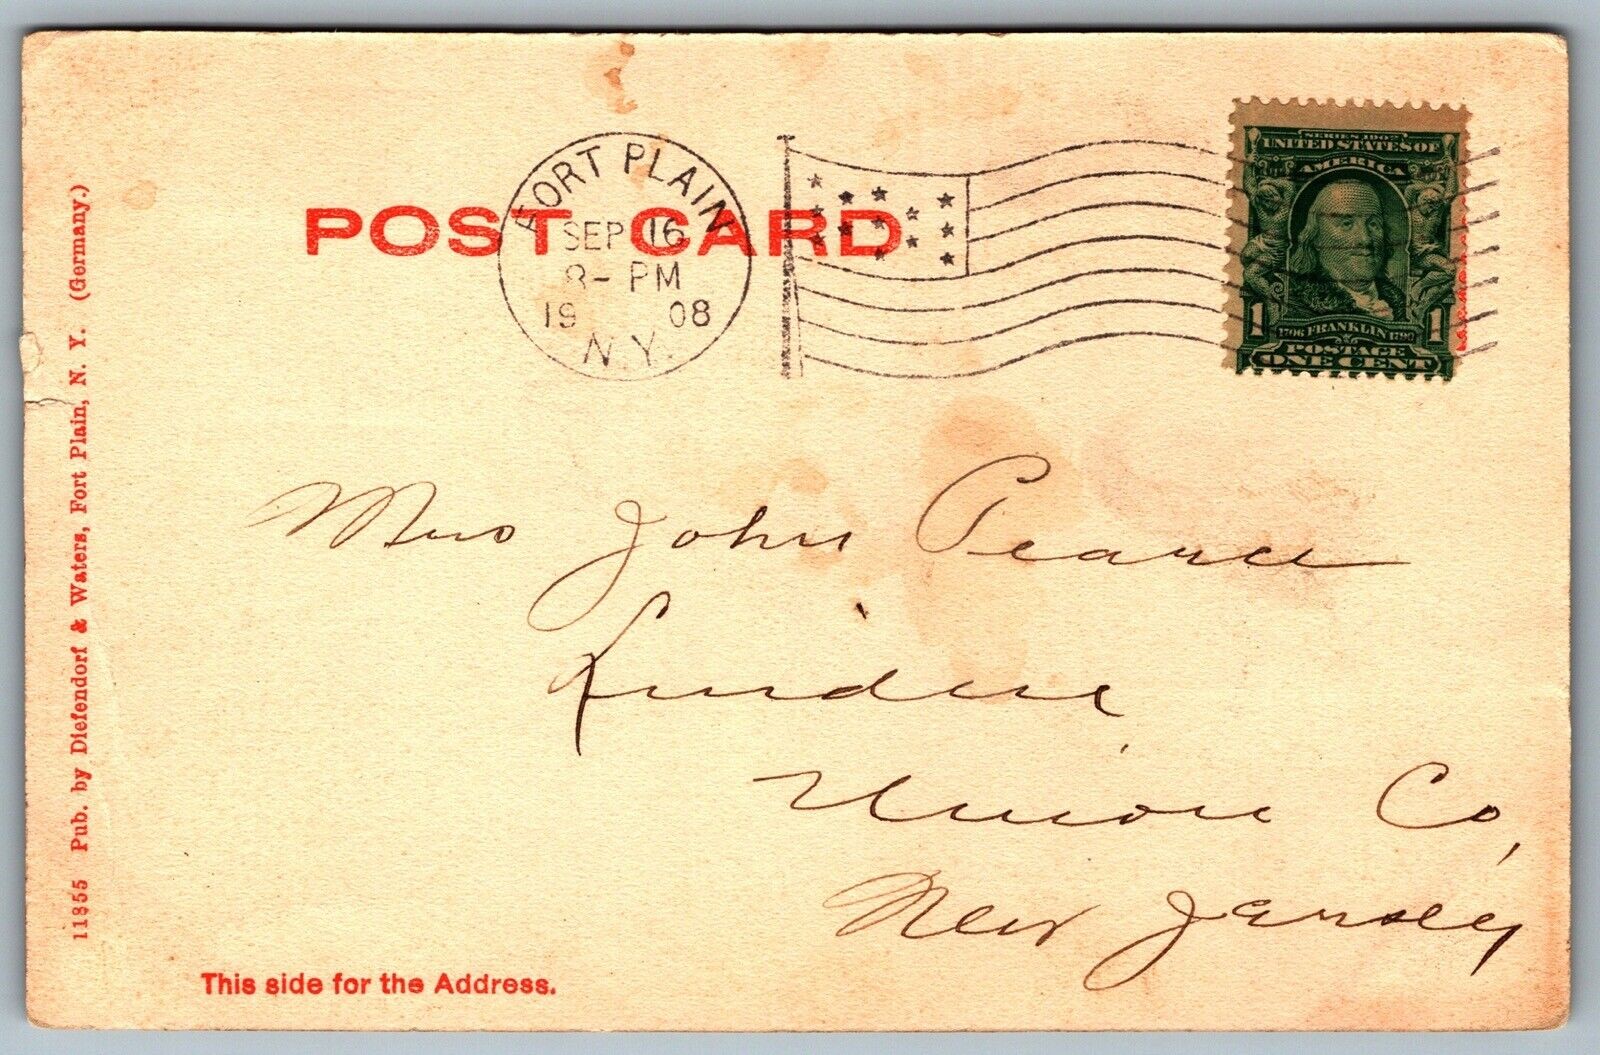 POST CARD
FORT PLAIN
SEP 16
8-PM
1908
N.Y.
SERIES 1902
UNITED STATES OF
AMERICA
1 1
1706 FRANKLIN 1790
POSTAGE
ONE CENT
Mrs John Pearce
Linden
Union Co,
New Jersey
11855 Pub. by Diefendorf & Waters, Fort Plain, N. Y. (Germany.)
This side for the Address.